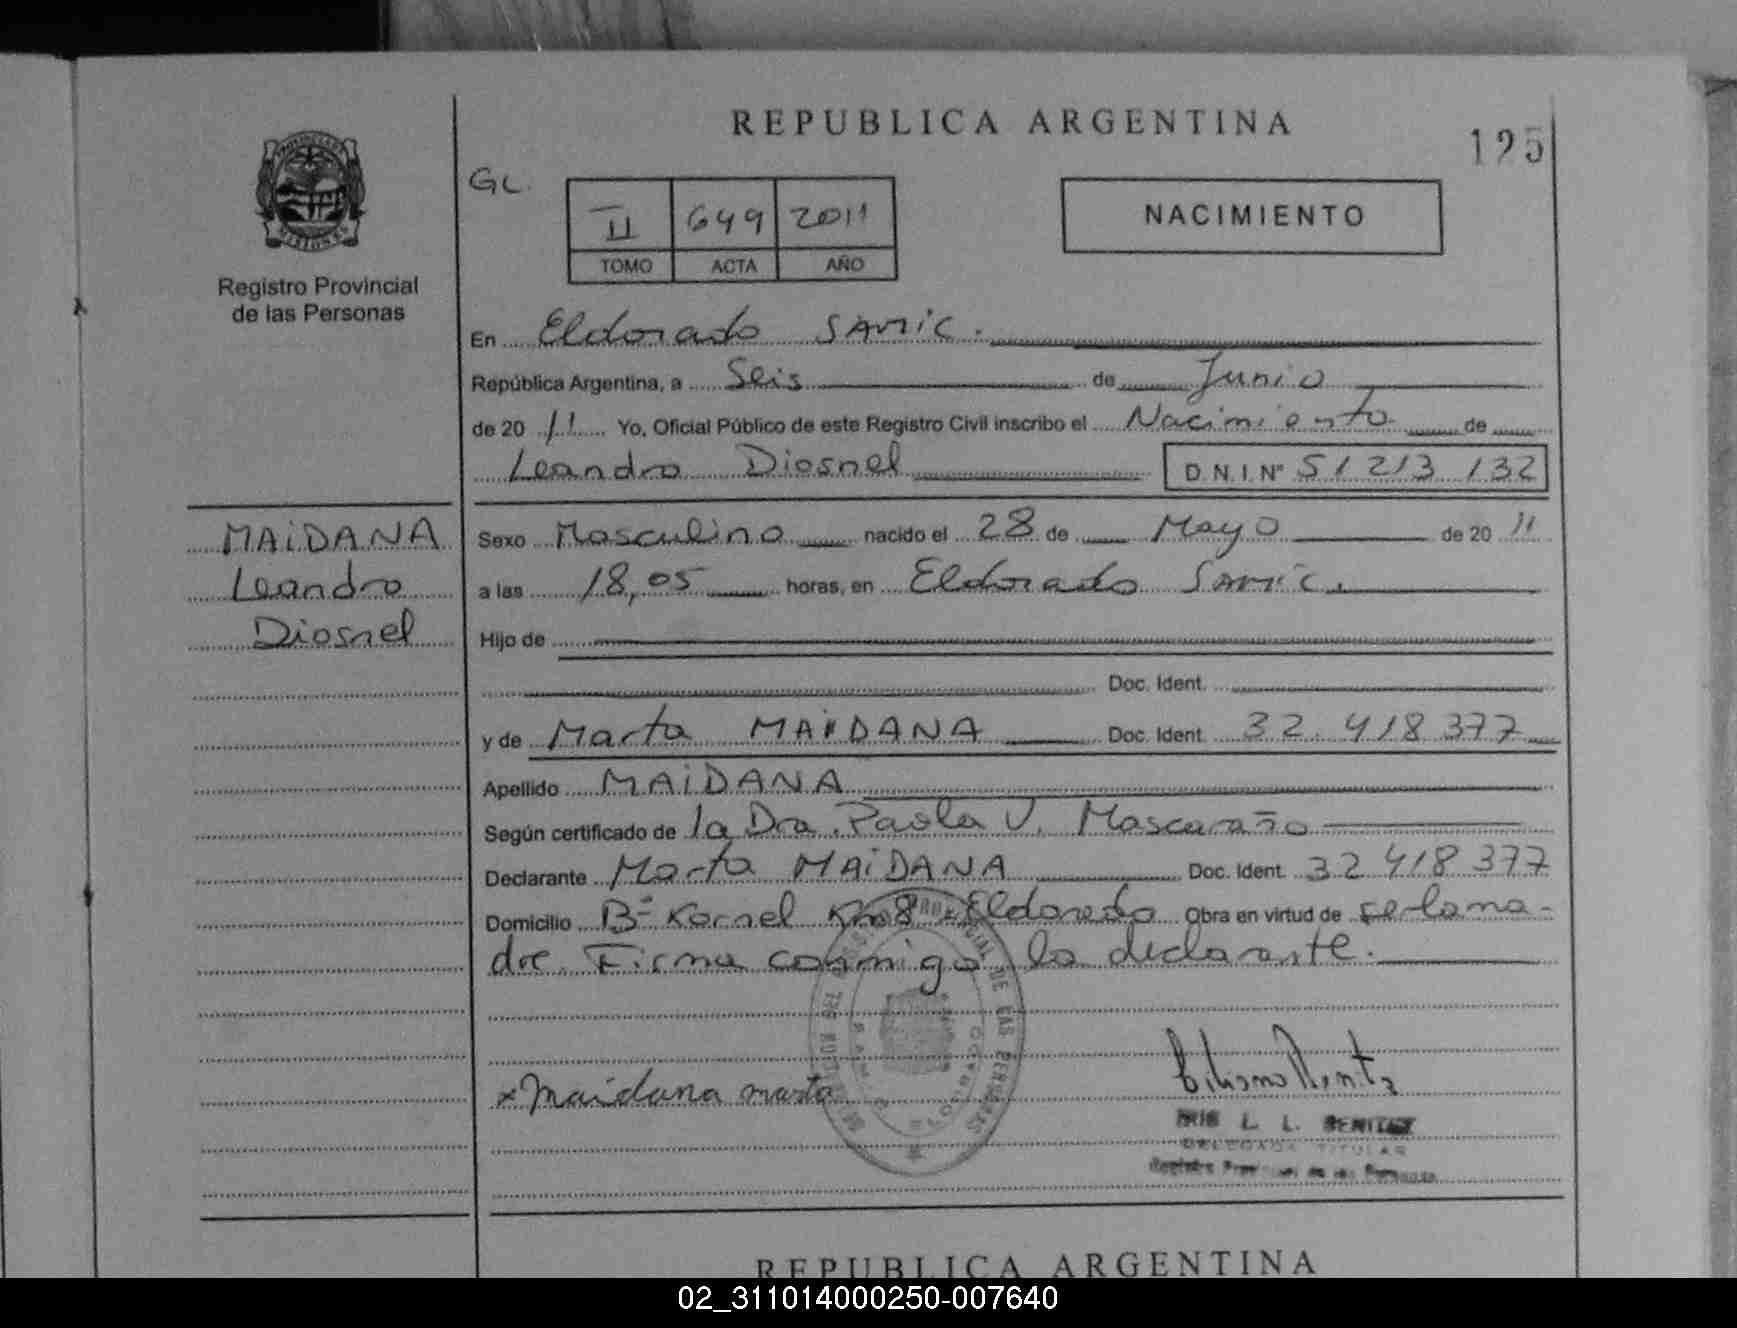 REPUBLICA ARGENTINA
125
GL.
II 649 2011
TOMO ACTA AÑO
NACIMIENTO
Registro Provincial
de las Personas
En Eldorado SAMIC.
República Argentina, a Seis de Junio
de 20 11 Yo, Oficial Público de este Registro Civil inscribo el Nacimiento de
Leandro Diosnel D.N.I. Nº 51 213 132
MAiDANA
Leandro
Diosnel
Sexo Masculino nacido el 28 de Mayo de 20 11
a las 18,05 horas, en Eldorado Samic.
Hijo de
Doc. Ident.
y de Marta MAiDANA Doc. Ident. 32.418377
Apellido MAiDANA
Según certificado de la Dra. Paola V. Mascaraño
Declarante Marta MAiDANA Doc. Ident. 32 418 377
Domicilio Bº Kornel Km 8 Eldorado Obra en virtud de ser la ma-
dre. Firma conmigo la declarante.
x Maidana marta
L. L. BENITEZ
DELEGADA TITULAR
Registro Provincial de las Personas
REPUBLICA ARGENTINA
02_311014000250-007640